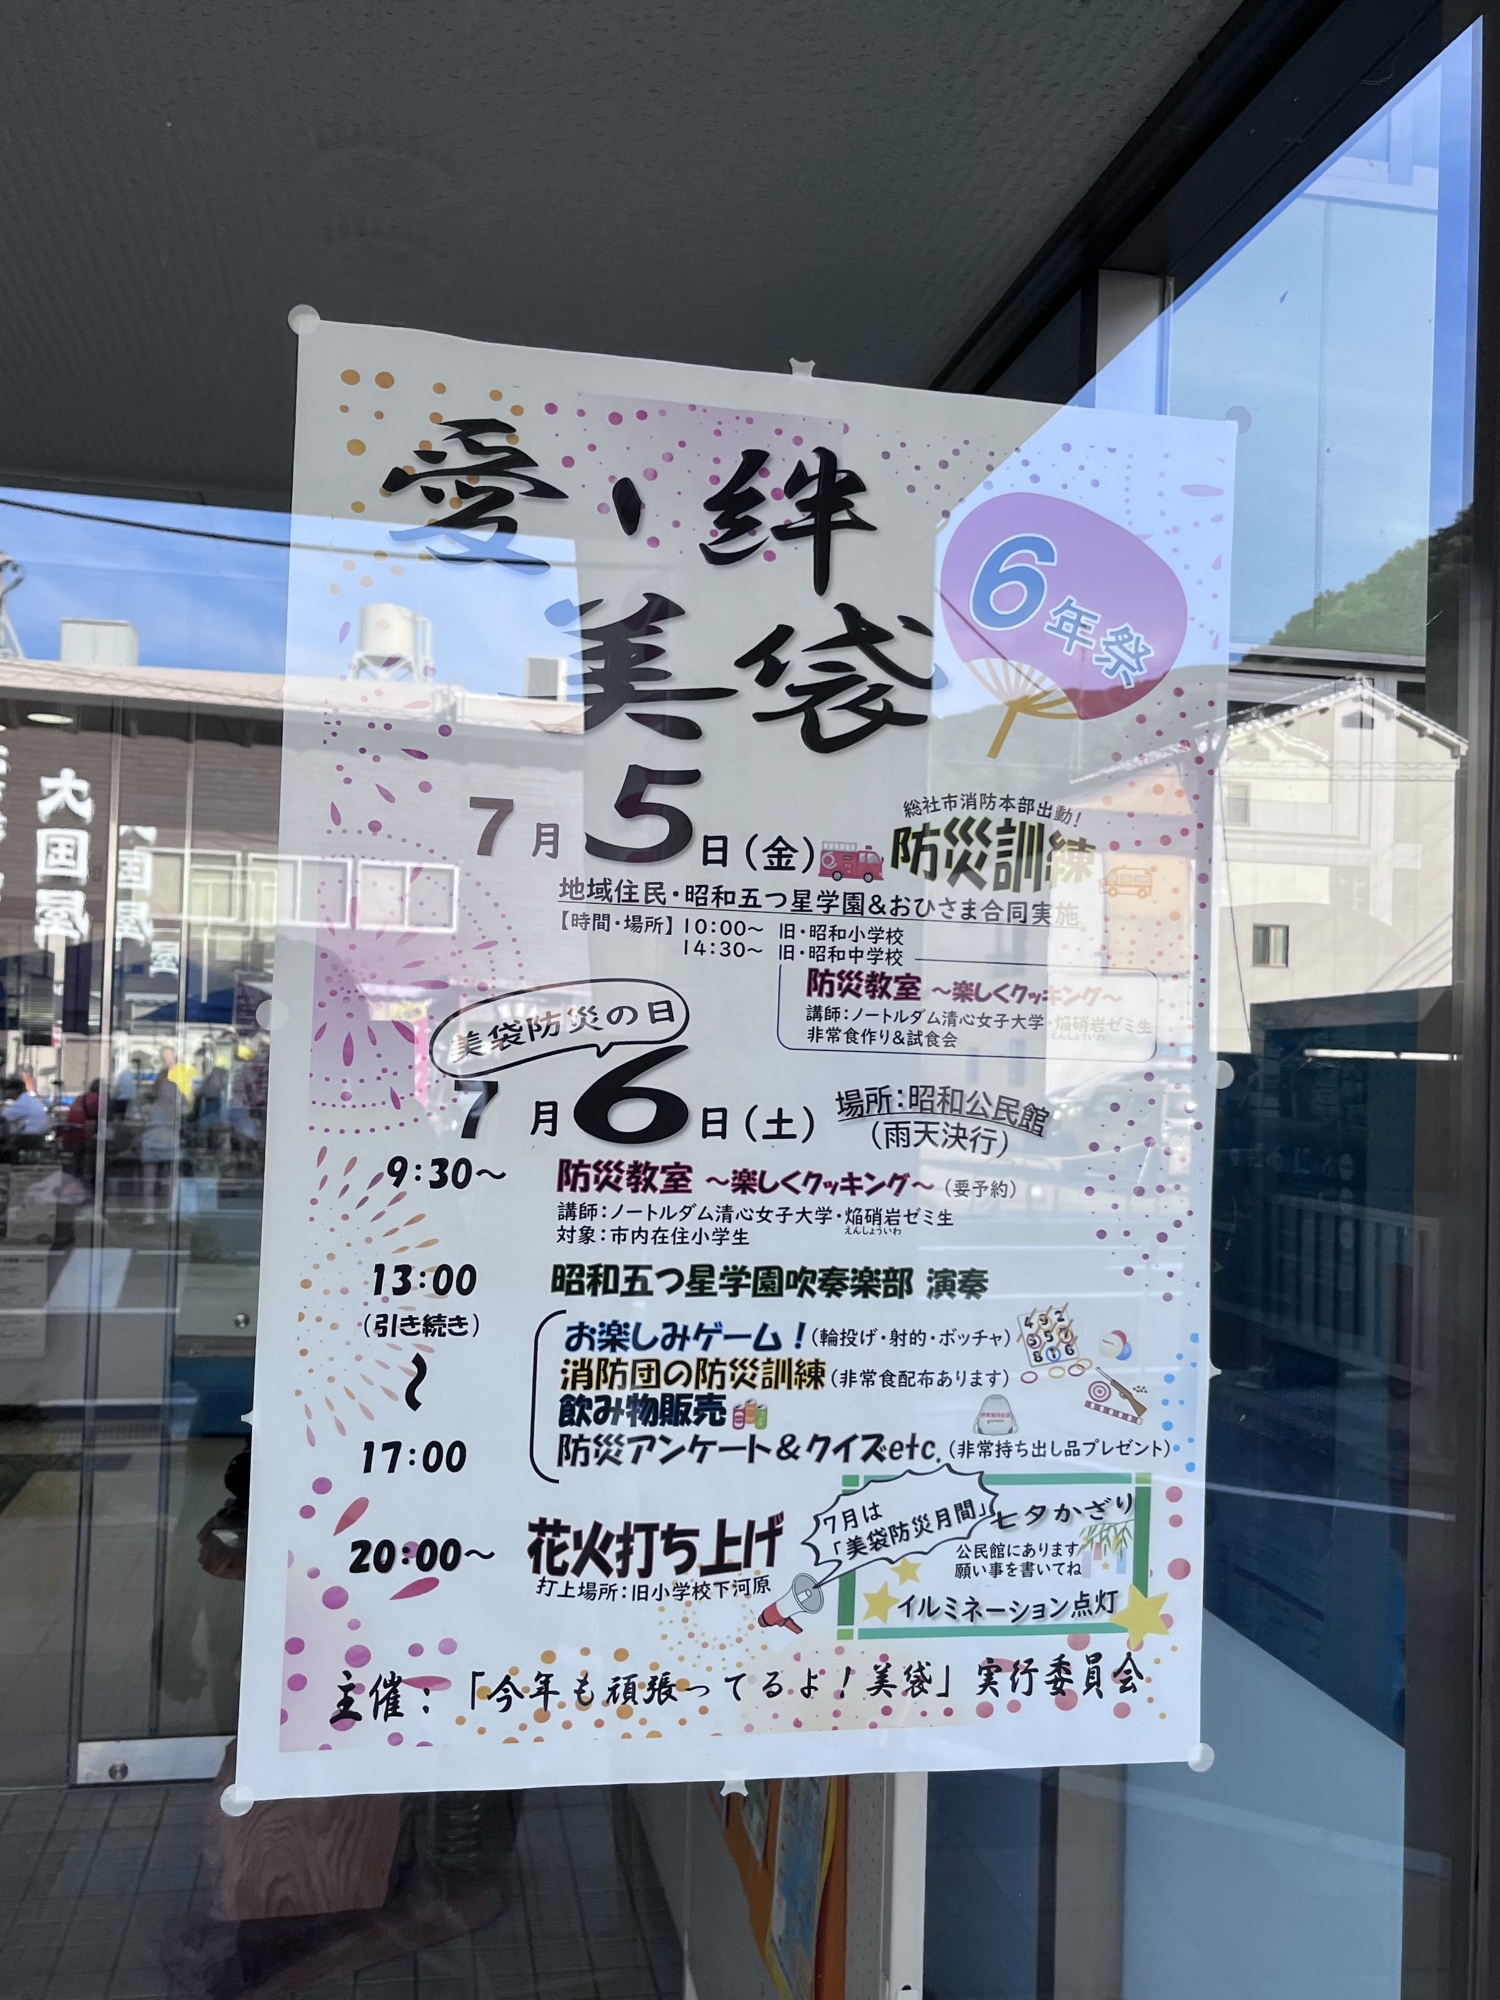 愛、絆
美袋
6年祭
7月5日(金)
総社市消防本部出動!
防災訓練
地域住民・昭和五つ星学園&おひさま合同実施
【時間・場所】10:00～ 旧・昭和小学校
14:30～ 旧・昭和中学校
防災教室 ～楽しくクッキング～
講師:ノートルダム清心女子大学・焔硝岩ゼミ生
非常食作り&試食会
美袋防災の日
7月6日(土)
場所:昭和公民館
(雨天決行)
9:30～ 防災教室 ～楽しくクッキング～(要予約)
講師:ノートルダム清心女子大学・焔硝岩ゼミ生
えんしょういわ
対象:市内在住小学生
13:00 昭和五つ星学園吹奏楽部 演奏
(引き続き)
～
17:00
お楽しみゲーム!(輪投げ・射的・ボッチャ)
消防団の防災訓練(非常食配布あります)
飲み物販売
防災アンケート&クイズetc.(非常持ち出し品プレゼント)
20:00～ 花火打ち上げ
打上場所:旧小学校下河原
7月は
「美袋防災月間」
七夕かざり
公民館にあります
願い事を書いてね
イルミネーション点灯
主催:「今年も頑張ってるよ!美袋」実行委員会
大国屋